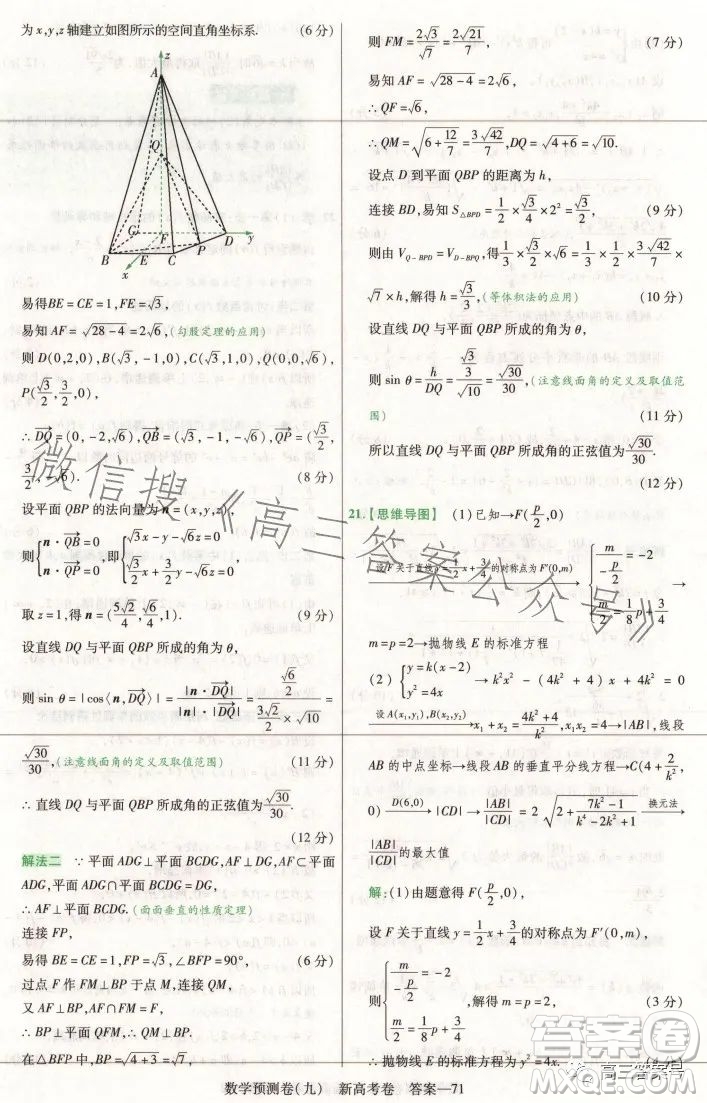 为x,y,z轴建立如图所示的空间直角坐标系. (6分)
z
A
Q
G
F
D
y
P
B
E
C
x
易得BE=CE=1,FE=√3,
易知AF=√(28-4)=2√6,(勾股定理的应用)
则D(0,2,0),B(√3,-1,0),C(√3,1,0),Q(0,0,√6),
P(√3/2,3/2,0),
∴DQ=(0,-2,√6),QB=(√3,-1,-√6),QP=(√3/2,
3/2,-√6). (8分)
设平面QBP的法向量为n=(x,y,z),
则{n·QB=0 n·QP=0,即{√3x-y-√6z=0 √3/2x+3/2y-√6z=0,
取z=1,得n=(5√2/4,√6/4,1). (9分)
设直线DQ与平面QBP所成的角为θ,
则sin θ=|cos⟨n,DQ⟩|=|n·DQ|/(|n|·|DQ|)=(√6/2)/(3√2/2×√10)=
√30/30,(注意线面角的定义及取值范围) (11分)
∴直线DQ与平面QBP所成角的正弦值为√30/30.
(12分)
解法二 ∵平面ADG⊥平面BCDG,AF⊥DG,AF⊂平面
ADG,平面ADG∩平面BCDG=DG,
∴AF⊥平面BCDG.(面面垂直的性质定理)
连接FP,
易得BE=CE=CP=1,FP=√3,∠BFP=90°, (6分)
过点F作FM⊥BP于点M,连接QM,
又AF⊥BP,AF∩FM=F,
∴BP⊥平面QFM,∴QM⊥BP.
在△BFP中,BP=√(4+3)=√7,
则FM=2√3/√7=2√21/7, (7分)
易知AF=√(28-4)=2√6,
∴QF=√6,
∴QM=√(6+12/7)=3√42/7,DQ=√(4+6)=√10.
设点D到平面QBP的距离为h,
连接BD,易知S△BPD=1/2×√3/4×2²=√3/2, (9分)
则由V_Q-BPD=V_D-BPQ,得1/3×√3/2×√6=1/3×1/2×3√42/7×
√7×h,解得h=√3/3,(等体积法的应用) (10分)
设直线DQ与平面QBP所成的角为θ,
则sin θ=h/DQ=(√3/3)/√10=√30/30,(注意线面角的定义及取值范
围) (11分)
所以直线DQ与平面QBP所成角的正弦值为√30/30.
(12分)
21.【思维导图】 (1)已知→F(p/2,0)
设F关于直线y=1/2x+3/4的对称点为F′(0,m)→{m/(-p/2)=-2 m/2=1/8p+3/4→
m=p=2→抛物线E的标准方程
(2){y=k(x-2) y²=4x→k²x²-(4k²+4)x+4k²=0
设A(x₁,y₁),B(x₂,y₂)→x₁+x₂=(4k²+4)/k²,x₁x₂=4→|AB|,线段
AB的中点坐标→线段AB的垂直平分线方程→C(4+2/k²,
0) D(6,0)→|CD|→|AB|/|CD|=2√(2+(7k²-1)/(k⁴-2k²+1)) 换元法→
|AB|/|CD|的最大值
解:(1)由题意得F(p/2,0),
设F关于直线y=1/2x+3/4的对称点为F′(0,m),
则{m/(-p/2)=-2 m/2=1/8p+3/4,解得m=p=2, (3分)
∴抛物线E的标准方程为y²=4x.
数学预测卷(九) 新高考卷 答案—71
微信搜《高三答案公众号》
答案圈
高三答案号